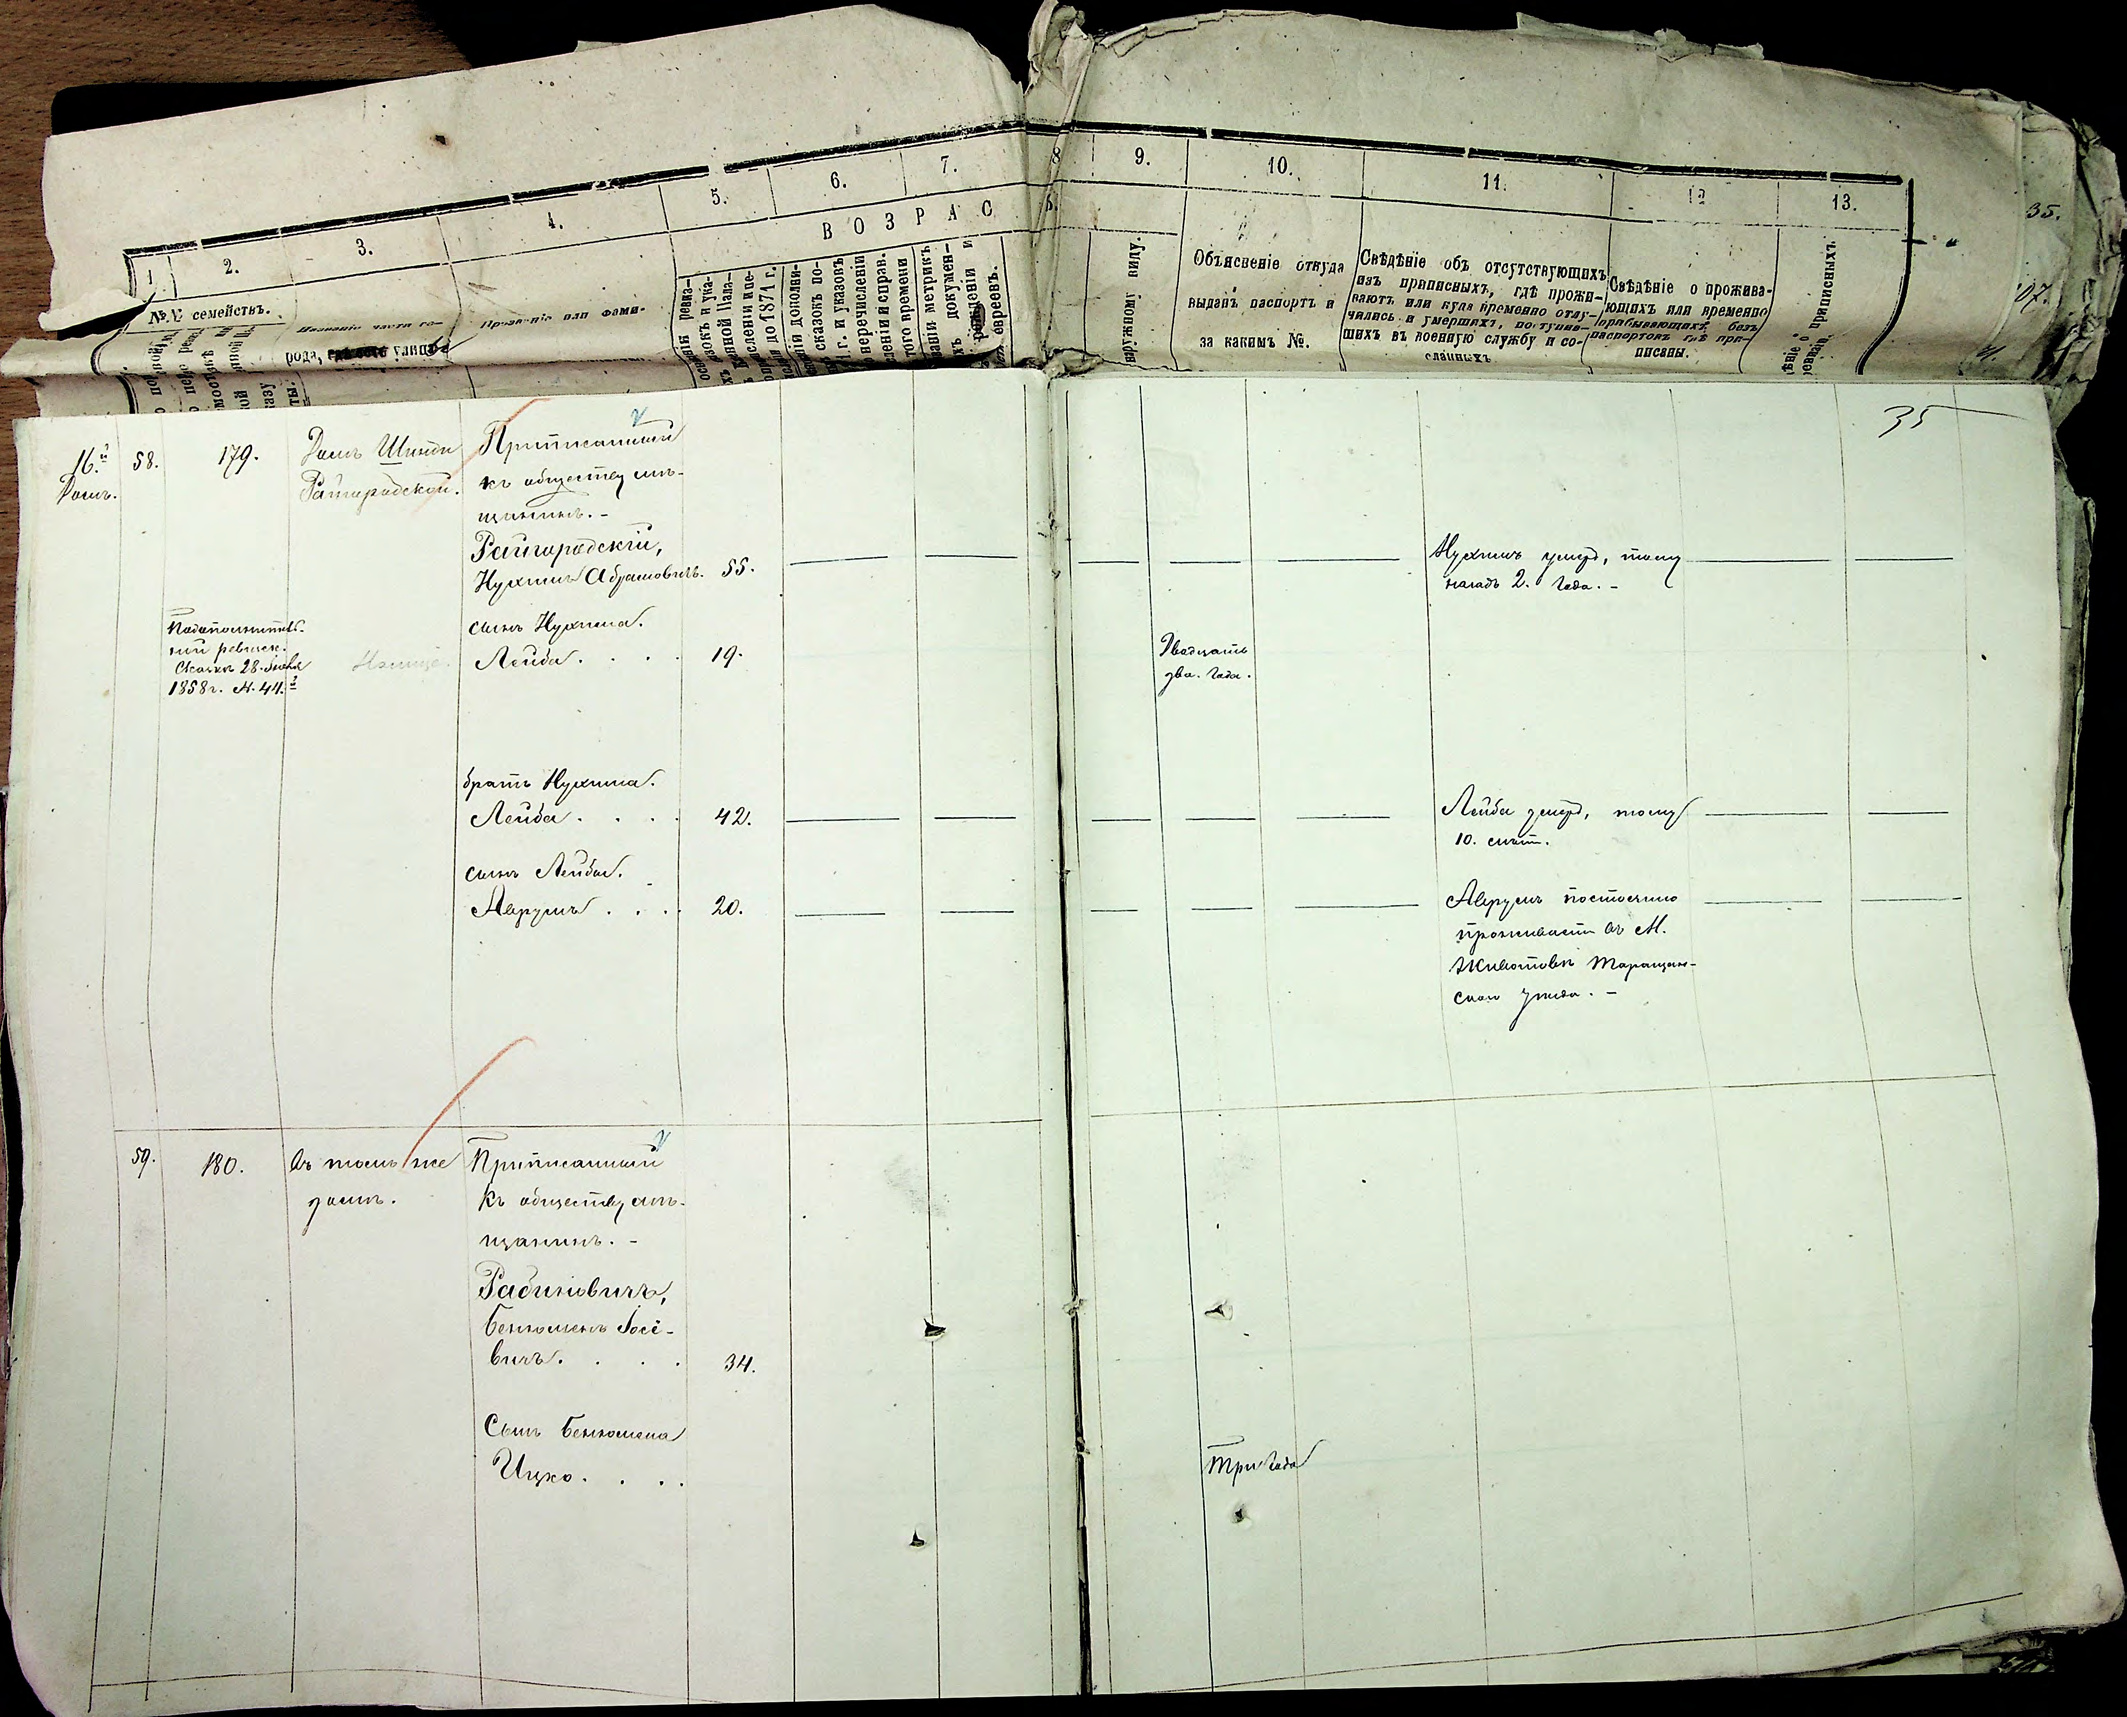 1. 2. 3. 4. 5. 6. 7. 8 9. 10. 11. 12 13.
ВОЗРАС
№№ семействъ.
Названіе части го-
рода, улицы
Прозваніе или фами-
наружному виду.
Объясненіе откуда
выданъ паспортъ и
за какимъ №.
Свѣдѣніе объ отсутствующихъ
изъ приписныхъ, гдѣ прожи-
ваютъ или куда временно отлу-
чились и умершихъ, поступив-
шихъ въ военную службу и со-
сланныхъ
Свѣдѣніе о прожива-
ющихъ или временно
пребывающихъ, безъ
паспортовъ гдѣ при-
писаны.
приписныхъ.
35.
07.
35
16.й
Домъ.
58.
179.
Домъ Шинди
Райгородской.
Приписанный
къ обществу мѣ-
щанинъ. -
Райгородскій,
Нухимъ Абрамовичъ. 55.
Нухимъ умеръ, тому
назадъ 2. года. -
По дополнитель-
ной ревизск.
Сказкѣ 28. Іюня
1858 г. №. 44.й
сынъ Нухима.
Лейба . . . . 19.
Двадцать
два. года.
братъ Нухима.
Лейба . . . . 42.
Лейба умеръ, тому
10. лѣтъ.
сынъ Лейбы.
Аврумъ . . . . 20.
Аврумъ постоянно
проживаетъ въ М.
Животовкѣ Таращан-
скаго уѣзда. -
59.
180.
Въ томъ же
домѣ.
Приписанный
къ обществу мѣ-
щанинъ. -
Рабиновичъ,
Беньоменъ Іосе-
вичъ. . . . 34.
Сынъ Беньомена
Ицко. . . .
Три года